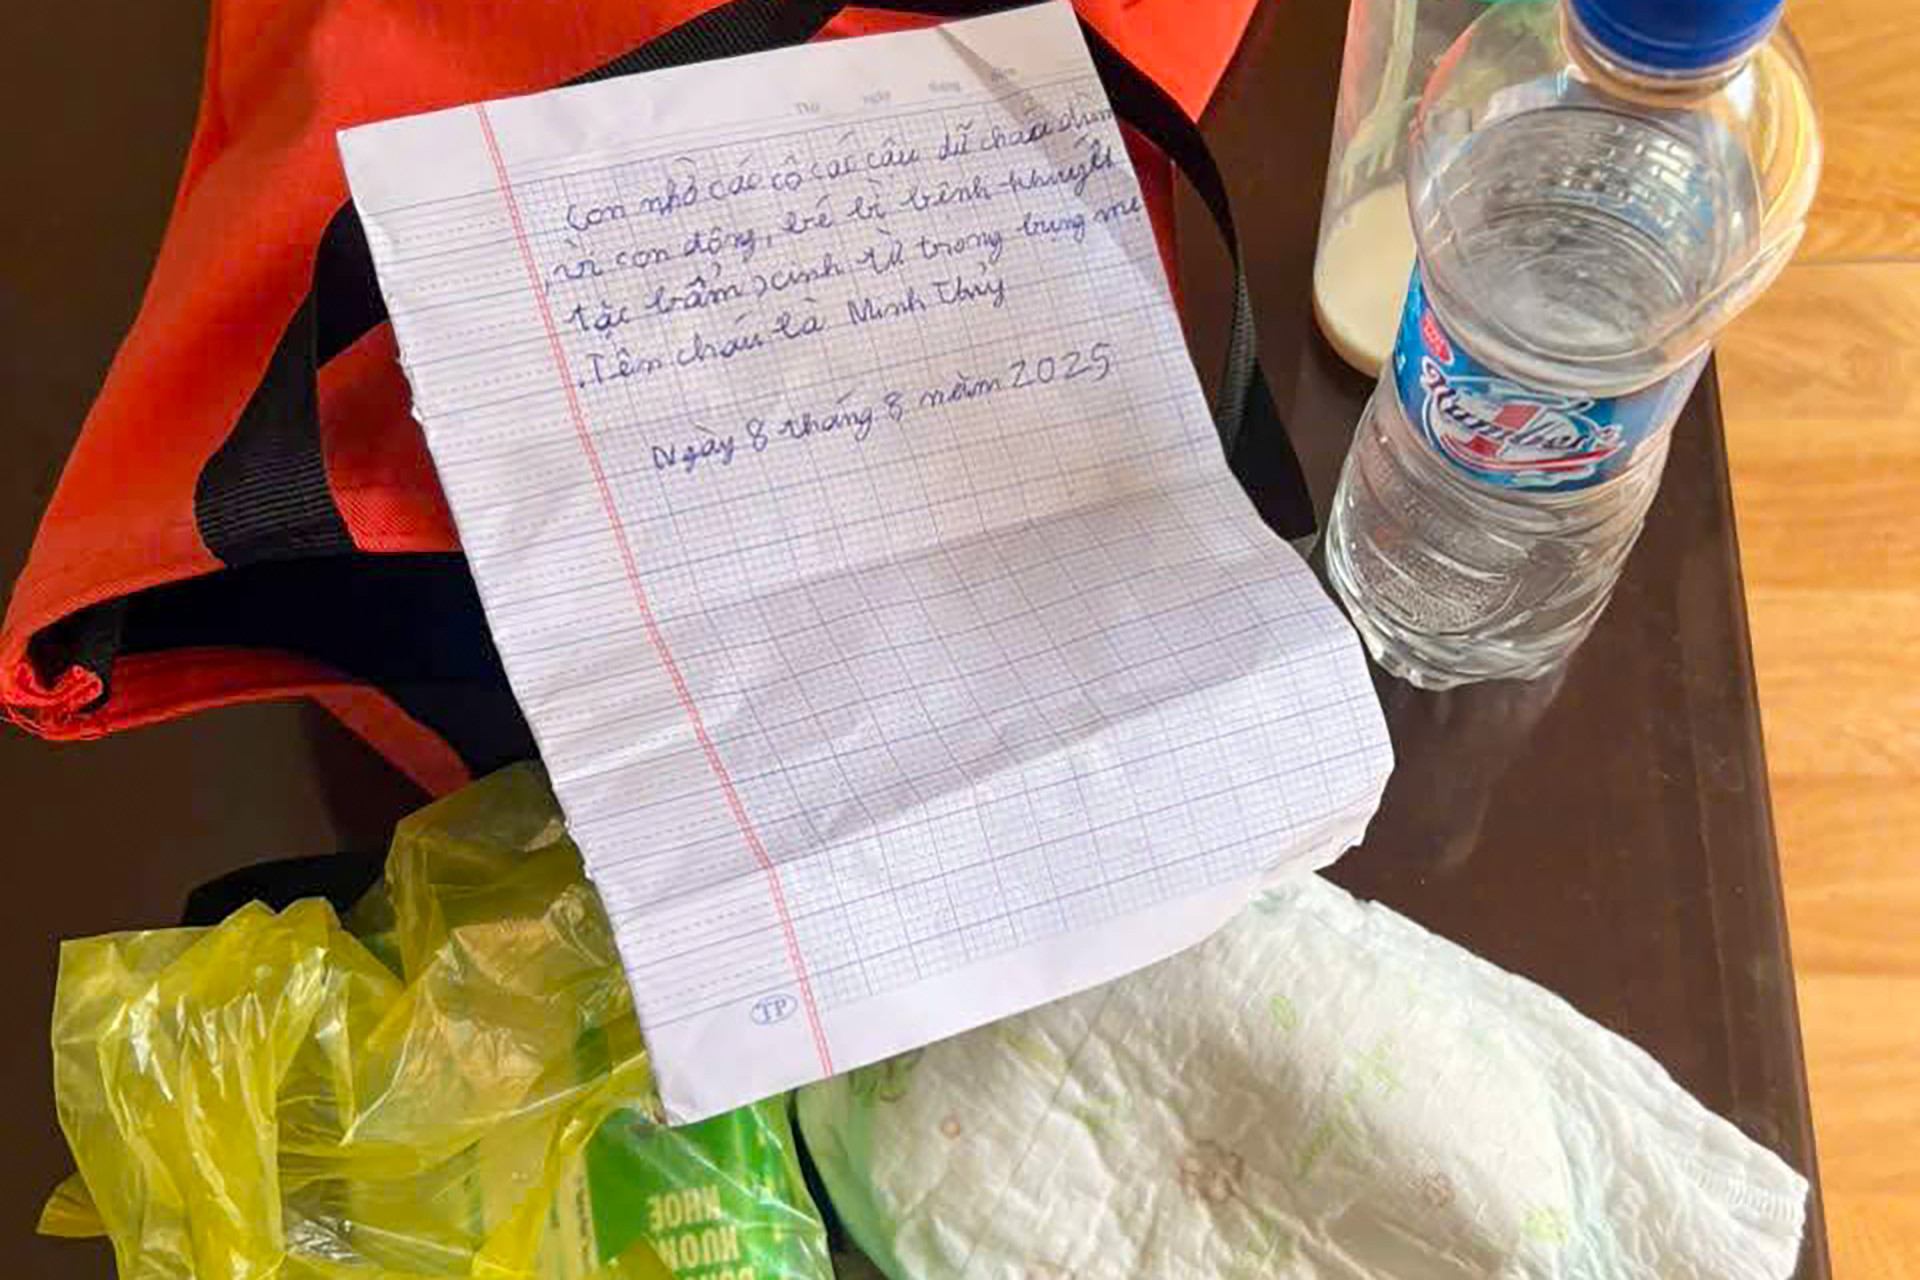 Thứ ngày tháng năm
Con nhờ các cô các câu dữ cháu dùm
vì con đông, bé bì bênh khuyết
tặc bẩm sinh từ trong bụng mẹ
. Tên cháu là Minh Thùy
Ngày 8 tháng 8 năm 2025
TP
Number
1
KHOE
KHOE